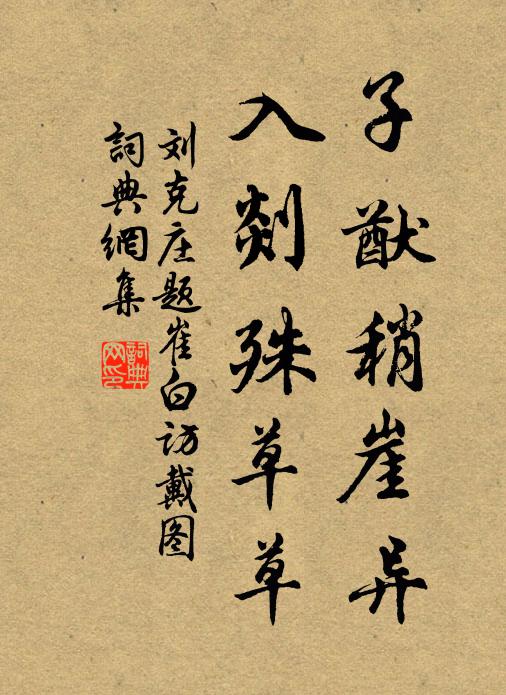 子猷稍崖异
入剡殊草草
刘克庄题崔白访戴图
詞典網集
詞典网印